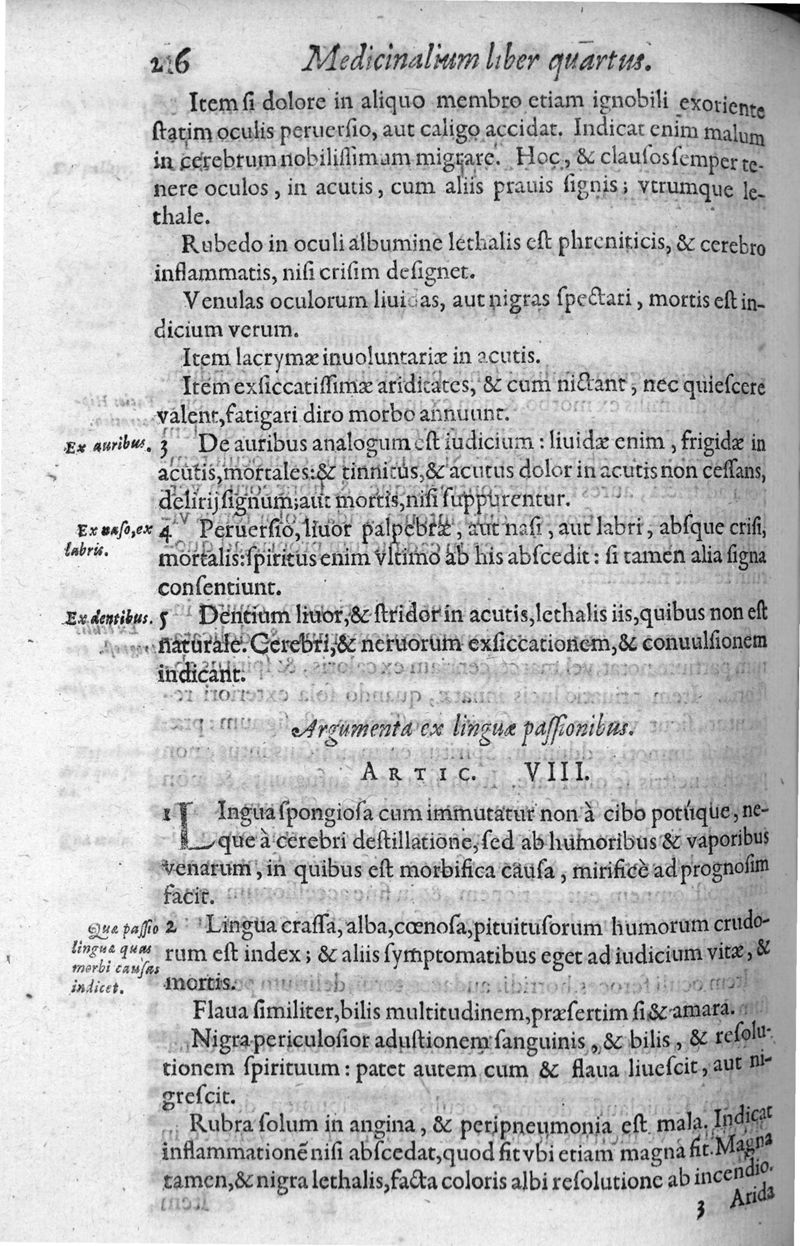 216 Medicinalium liber quartus.
Item ſi dolore in aliquo membro etiam ignobili exoriente
ſtatim oculis peruerſio, aut caligo accidat. Indicat enim malum
in cerebrum nobiliſſimum migrare. Hoc, & clauſos ſemper te-
nere oculos, in acutis, cum aliis prauis ſignis; vtrumque le-
thale.
Rubedo in oculi albumine lethalis eſt phreniticis, & cerebro
inflammatis, niſi criſim deſignet.
Venulas oculorum liuidas, aut nigras ſpectari, mortis eſt in-
dicium verum.
Item lacrymæ inuoluntariæ in acutis.
Item exſiccatiſſimæ ariditates, & cum nictant, nec quieſcere
valent, fatigari diro morbo annuunt.
Ex auribus. 3 De auribus analogum eſt iudicium: liuidæ enim, frigidæ in
acutis, mortales: & tinnitus, & acutus dolor in acutis non ceſſans,
delirij ſignum; aut mortis, niſi ſuppurentur.
Ex naſo, ex 4 Peruerſio, liuor palpebræ, aut naſi, aut labri, abſque criſi,
labris. mortalis: ſpiritus enim vltimo ab his abſcedit: ſi tamen alia ſigna
conſentiunt.
Ex dentibus. 5 Dentium liuor, & ſtridor in acutis, lethalis iis, quibus non eſt
naturale. Cerebri, & neruorum exſiccationem, & conuulſionem
indicant.
Argumenta ex linguæ paſſionibus.
ARTIC. VIII.
1 LIngua ſpongioſa cum immutatur non à cibo potúque, ne-
que à cerebri deſtillatione, ſed ab humoribus & vaporibus
venarum, in quibus eſt morbifica cauſa, mirificè ad prognoſim
facit.
Quæ paſſio 2 Lingua craſſa, alba, cœnoſa, pituituſorum humorum crudo-
linguæ quas rum eſt index; & aliis ſymptomatibus eget ad iudicium vitæ, &
morbi cauſas
indicet. mortis.
Flaua ſimiliter, bilis multitudinem, præſertim ſi & amara.
Nigra periculoſior aduſtionem ſanguinis, & bilis, & reſolu-
tionem ſpirituum: patet autem cum & flaua liueſcit, aut ni-
greſcit.
Rubra ſolum in angina, & peripneumonia eſt mala. Indicat
inflammationẽ niſi abſcedat, quod fit vbi etiam magna fit. Magna
tamen, & nigra lethalis, facta coloris albi reſolutione ab incendio.
3 Arida